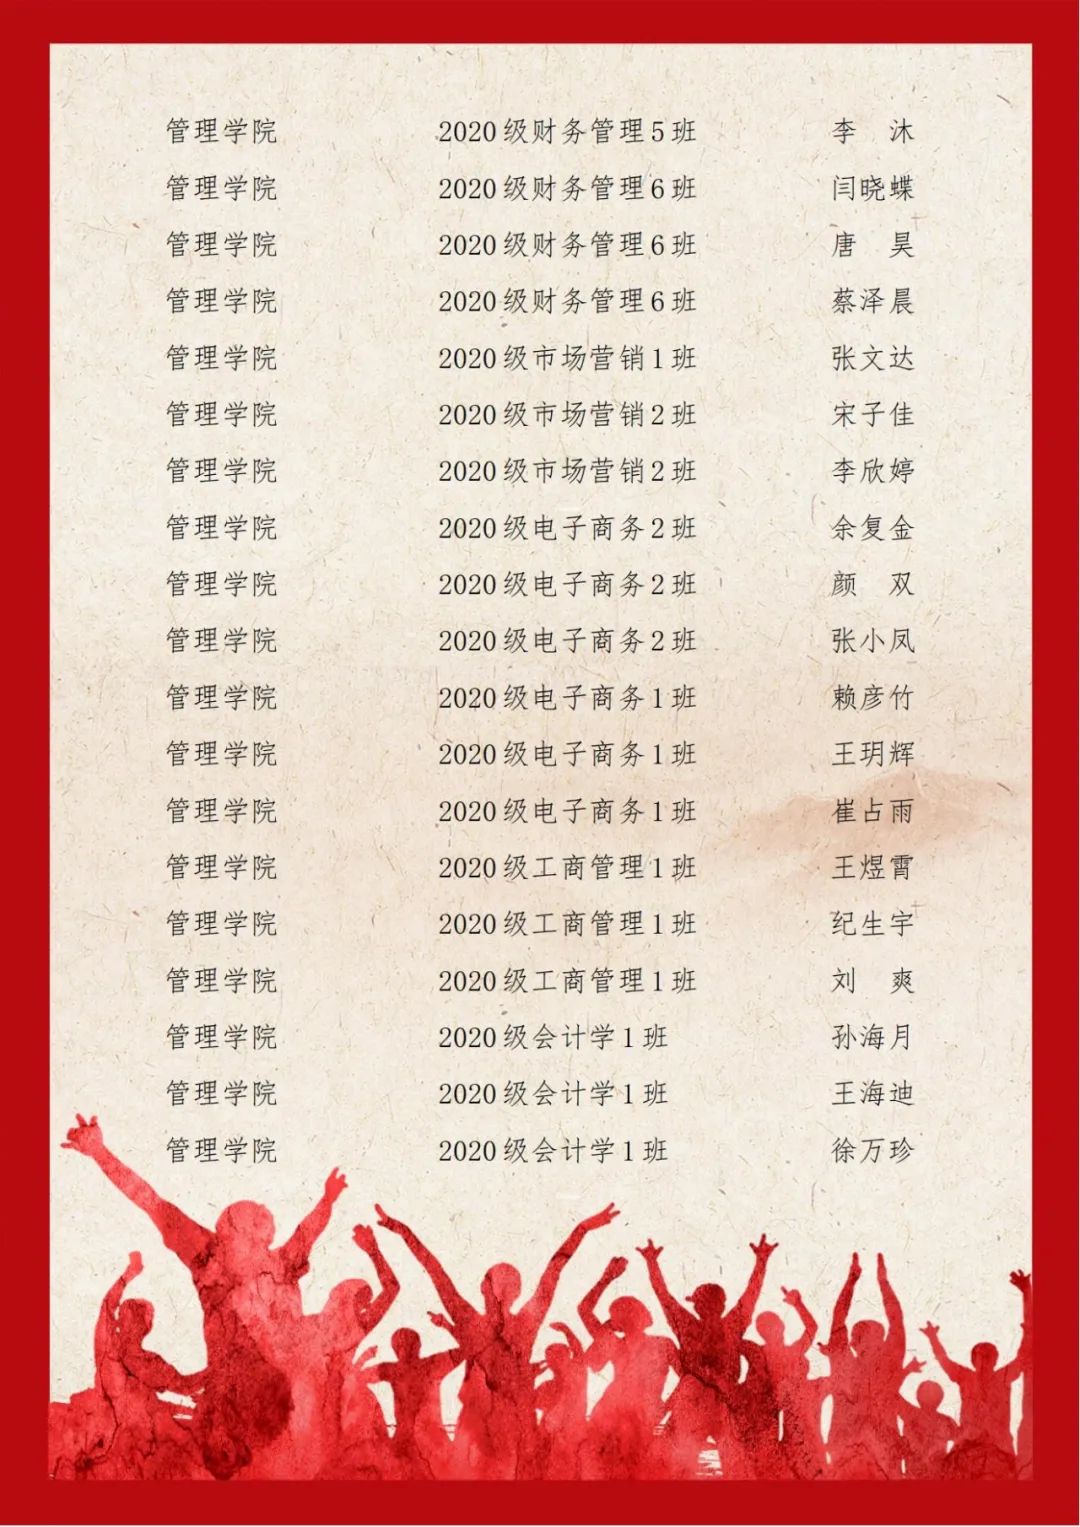 管理学院 2020级财务管理5班 李 沐
管理学院 2020级财务管理6班 闫晓蝶
管理学院 2020级财务管理6班 唐 昊
管理学院 2020级财务管理6班 蔡泽晨
管理学院 2020级市场营销1班 张文达
管理学院 2020级市场营销2班 宋子佳
管理学院 2020级市场营销2班 李欣婷
管理学院 2020级电子商务2班 余复金
管理学院 2020级电子商务2班 颜 双
管理学院 2020级电子商务2班 张小凤
管理学院 2020级电子商务1班 赖彦竹
管理学院 2020级电子商务1班 王玥辉
管理学院 2020级电子商务1班 崔占雨
管理学院 2020级工商管理1班 王煜霄
管理学院 2020级工商管理1班 纪生宇
管理学院 2020级工商管理1班 刘 爽
管理学院 2020级会计学1班 孙海月
管理学院 2020级会计学1班 王海迪
管理学院 2020级会计学1班 徐万珍